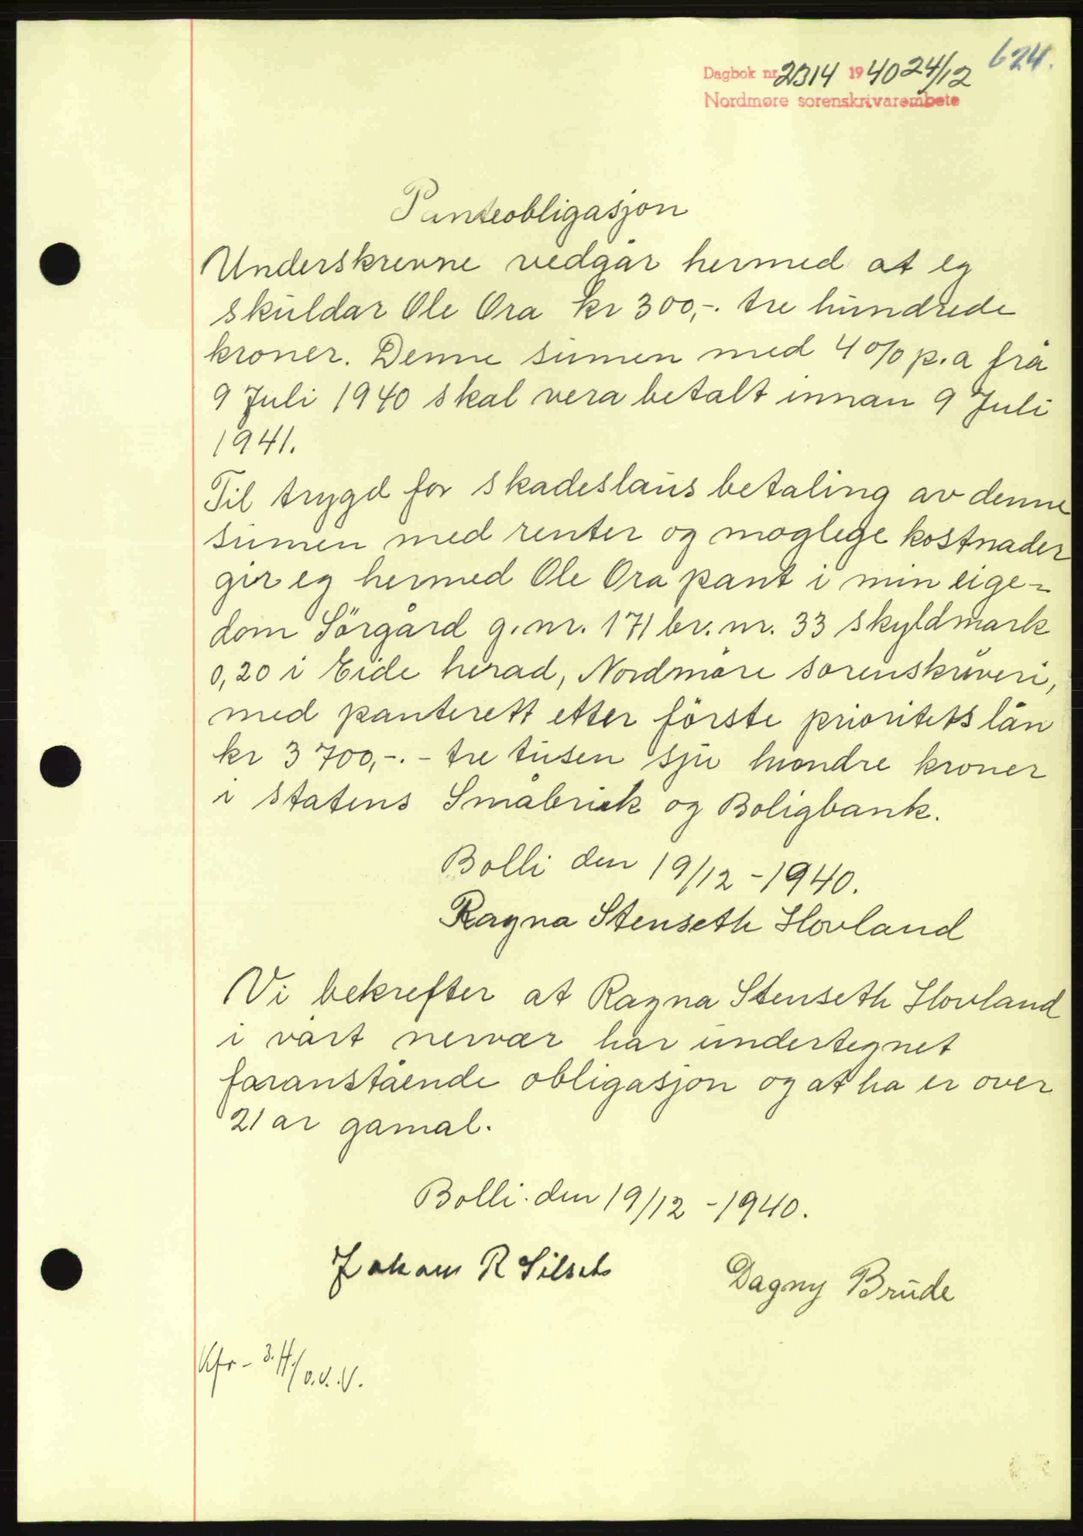 624.
Dagbok nr. 2314 1940 24/12
Nordmøre sorenskrivarembete
Panteobligasjon
Underskrevne vedgår hermed at eg
skuldar Ole Ora kr 300,-. tre hundrede
kroner. Denne sumen med 4% p.a frå
9 Juli 1940 skal vera betalt innan 9 Juli
1941.
Til trygd for skadeslaus betaling av denne
sumen med renter og moglege kostnader
gir eg hermed Ole Ora pant i min eige=
dom Sörgård g.nr. 171 br.nr. 33 skyldmark
0,20 i Eide herad, Nordmöre sorenskriveri,
med panterett etter förste prioritets lån
kr 3700,-. - tre tusen sju hundre kroner
i statens Småbruk og Boligbank.
Bolli den 19/12 -1940.
Ragna Stenseth Hovland
Vi bekrefter at Ragna Stenseth Hovland
i vårt nervær har undertegnet
foranstående obligasjon og at ho er over
21 år gamal.
Bolli den 19/12 -1940.
R Silseth Dagny Brude
Kfr-